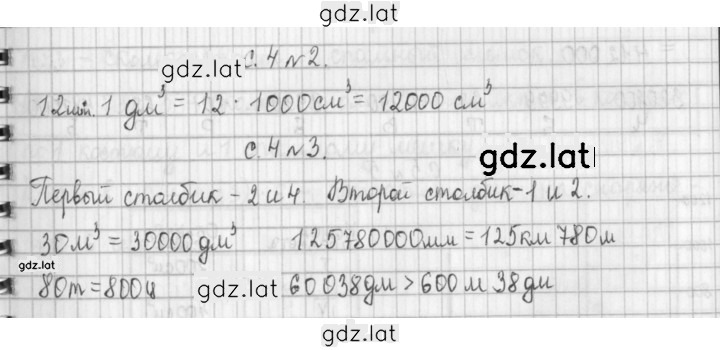 gdz.lat
с. 4 №2.
gdz.lat
12шт. 1 дм³ = 12 · 1000см³ = 12000 см³
с. 4 №3.
gdz.lat
Первый столбик - 2 и 4. Второй столбик - 1 и 2.
30м³ = 30000дм³ 125780000мм = 125км 780м
gdz.lat
80т = 800ц 60038дм > 600м 38дм
gdz.lat
gdz.lat